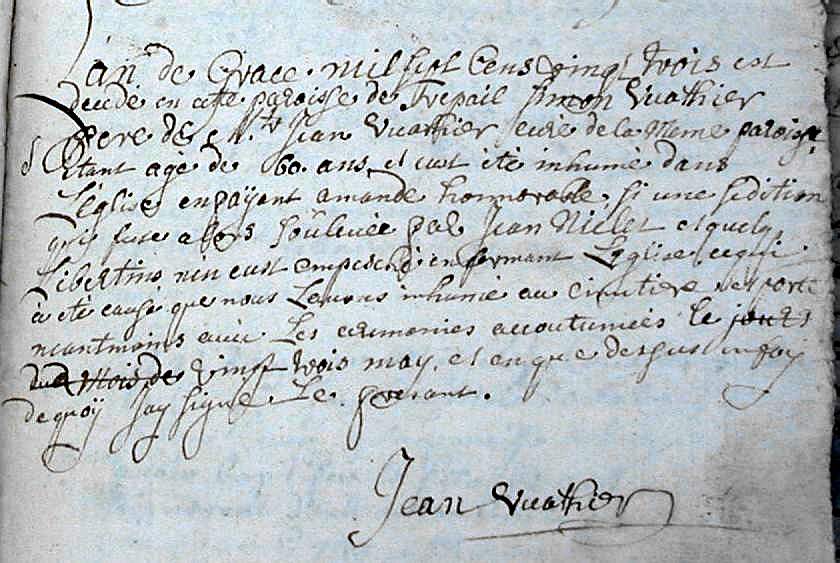 Lan de Grace mil sept cens vingt trois est
decedé en cette paroisse de Trepail simon Vuathier
pere de Mtre Jean Vuathier curé de la meme paroisse
Etant agé de 60 ans, et eust été inhumé dans
L'église en payant amande honnorable, si une sedition
qui fust alors soulevée par Jean Niclet et quelq
Libertins n'en eust empesché en fermant L'église, ce qui
à été cause que nous Lavons inhumé au cimetiere
neantmoins avec Les ceremonies accoutumées le jours
du mois de vingt trois may, et en que dessus en foy
de quoÿ Jay signé Le present.
Jean Vuathier